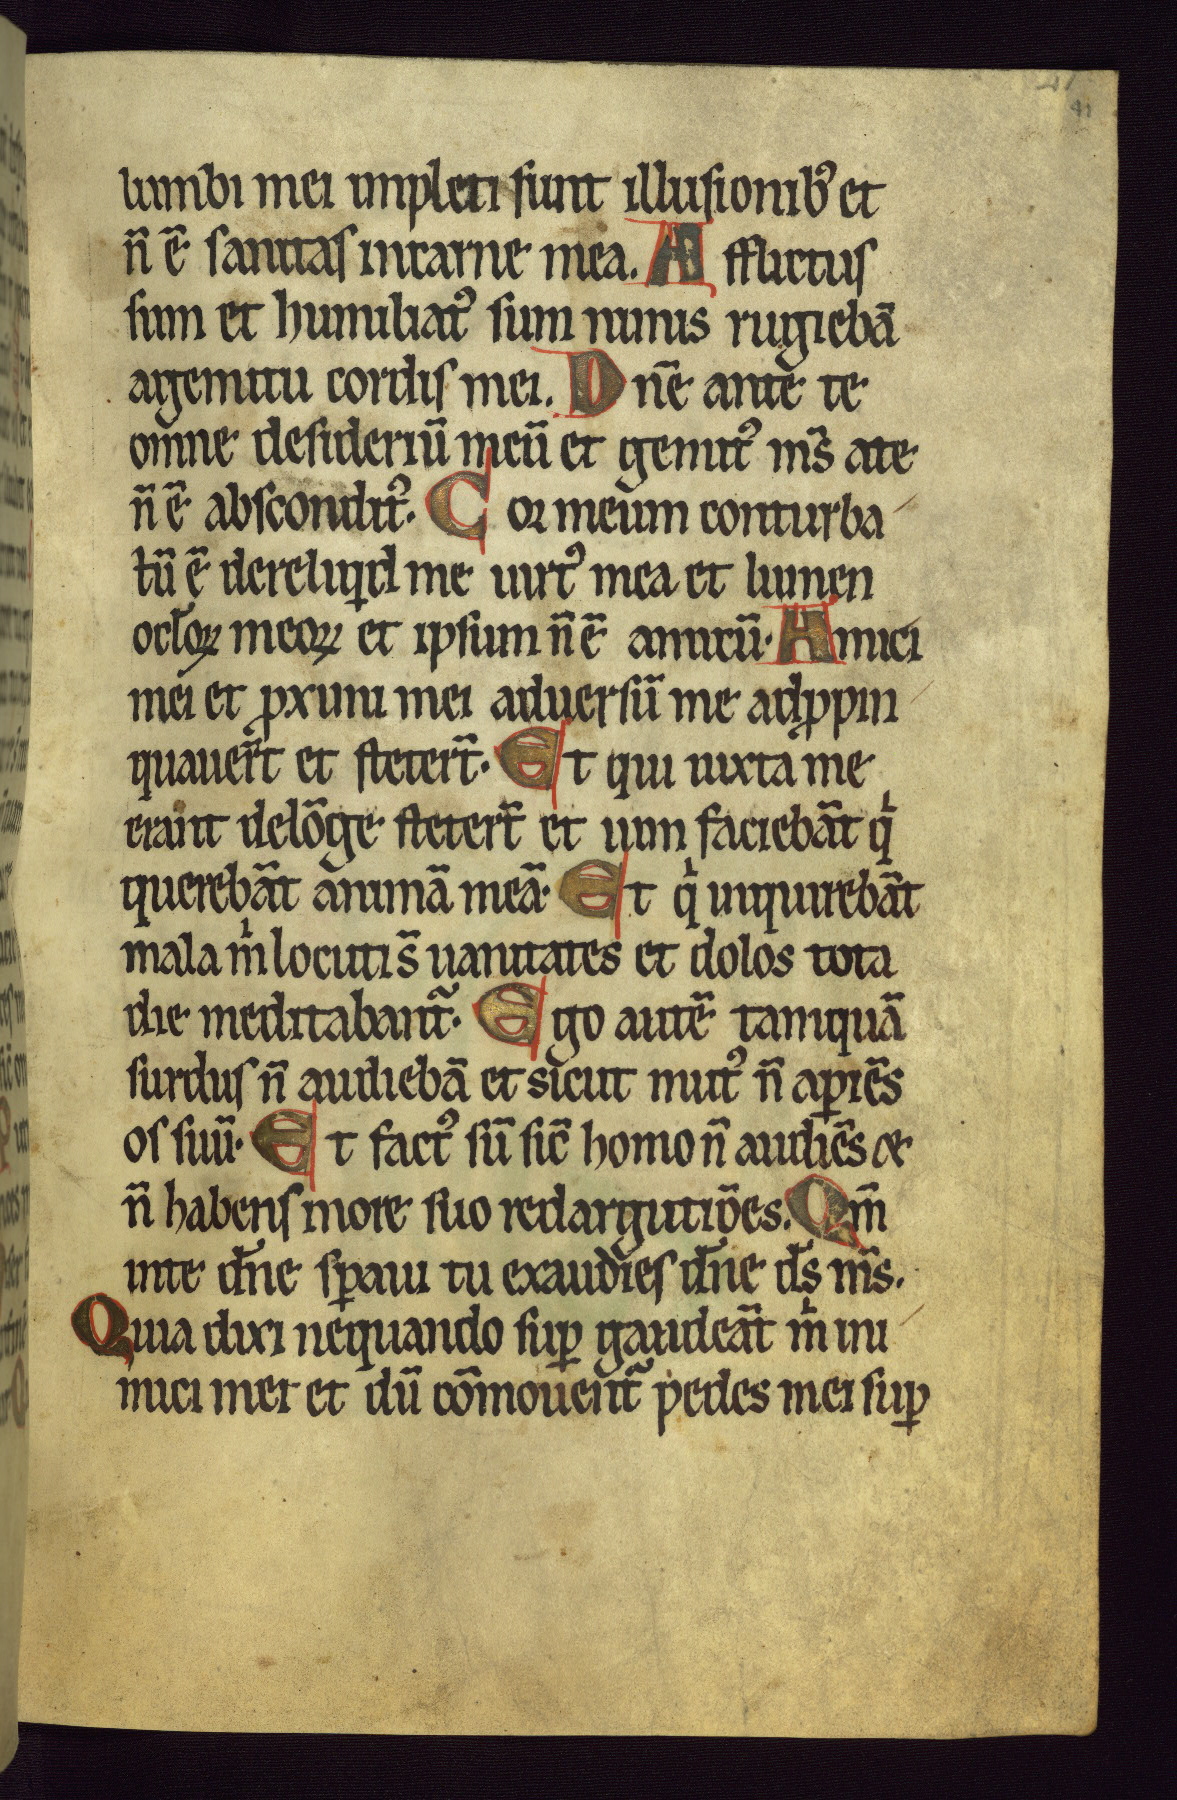 41
lumbi mei impleti sunt illusionibꝰ et
n̄ ē sanitas incarne mea. A fflictus
sum et humiliatꝰ sum nimis rugiebā
agemitu cordis mei. D n̄e ante te
omne desideriū meū et gemitꝰ m̄s ate
n̄ ē absconditꝰ. C oꝛ meum conturba
tū ē dereliquid me uirtꝰ mea et lumen
ocl̄oꝝ meoꝝ et ipsum n̄ ē amicū. Amici
mei et ꝓximi mei aduersū me adꝓpin
quauer̄t et steter̄t. Et qui iuxta me
erant delōge steter̄t et uim faciebāt qͥ
querebāt animā meā. Et qͥ inquirebāt
mala mͥ locuti s̄ uanitates et dolos tota
die meditabant᷑. Ego autē tamquā
surdus n̄ audiebā et sicut mutꝰ n̄ apiēs
os suū. Et factꝰ sū sic̄ homo n̄ audiēs et
n̄ habens more suo redargutiōes. Qm̄
inte dn̄e sꝑaui tu exaudies dn̄e ds̄ m̄s.
Quia dixi nequando suꝑ gaudeāt mͥ ini
mici mei et dū cōmouent᷑ pedes mei suꝑ